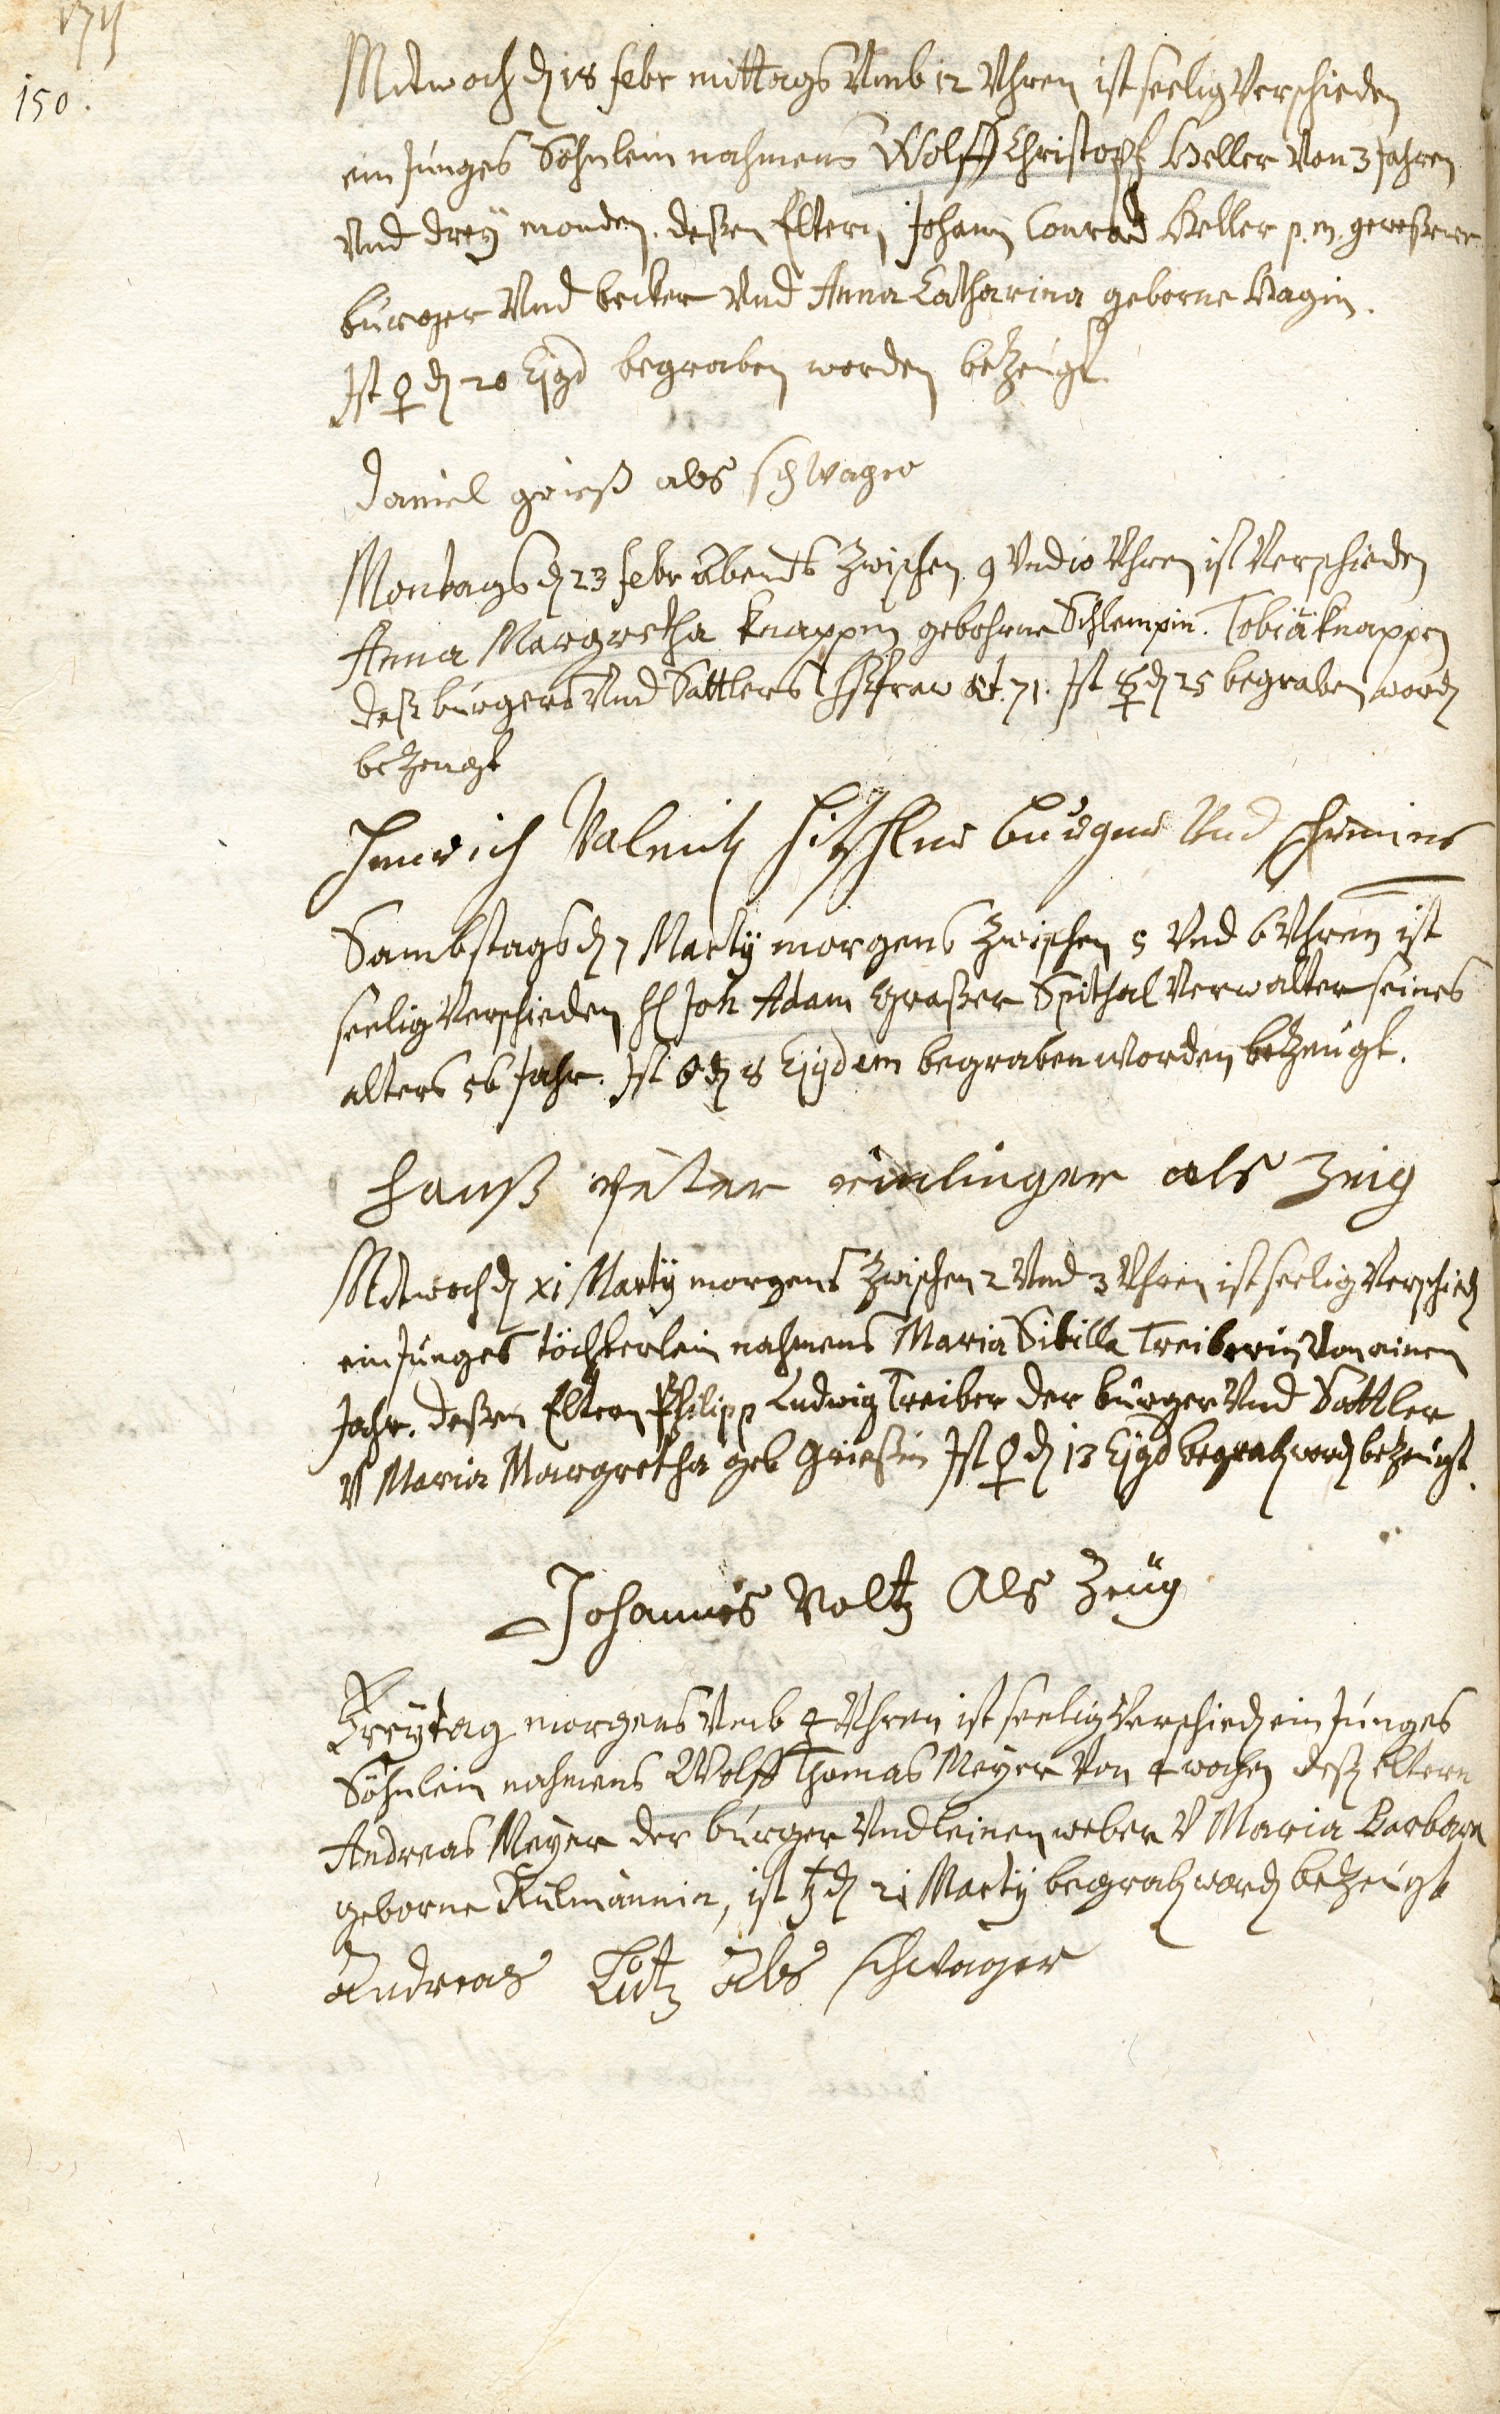 150.
Mitwoch dℌ 18 febr mittags Vmb 12 Vhren ist seelig Verschieden
ein junges Söhnlein nahmens Wolff Christoph Heller Von 3 Jahren
Vnd drey monden. deßen Eltern Johann Conrad Heller p. m. geweßener
burger Vnd becker Vnd Anna Catharina geborne Hagin.
Ist ♀ d 20 Ejgd begraben worden bezeugt
Daniel grieß als schwager
Montags d 23 febr Abends zwischen 9 Vnd 10 Vhren ist Verschieden
Anna Margretha Knappin gebohrne Schlempin. Tobiä Knappen
deß burgers Vnd Sattlers Hßfraw æt. 71. Ist ☿ d 25 begraben word
bezeugt
Henrich Valentz burger Vnd
Sambstags d 7 Marty morgens zwischen 5 Vnd 6 Vhren ist
seelig Verschieden H Joh Adam Graßer Spithal Verwalter seines
alters 56 Jahr. Ist d 8 Ejgdem begraben worden bezeugt.
Hanß peter als zeig
Mitwoch d xi Marty morgens zwischen 2 Vnd 3 Vhren ist seelig Verschied
ein junges töchterlein nahmens Maria Sibilla Treiberin Von einem
Jahr. deßen Eltern Philipp Ludwig Treiber der burger Vnd Sattler
V Maria Margretha geb Grießin Ist ♀ d 13 Ejgd begrab word bezeugt.
Johannes Voltz Als Zeüg
Freytag morgens Vmb 4 Vhren ist seelig Verschied ein junges
Söhnlein nahmens Wolff Thomas Meyer Von 4 wochen deß eltern
Andreas Meyer der burger Vnd leinenweber V Maria Barbara
geborne Kulmännin, ist ♄ d 21 Marty begrab word bezeugt
Andreas Lutz als schwager